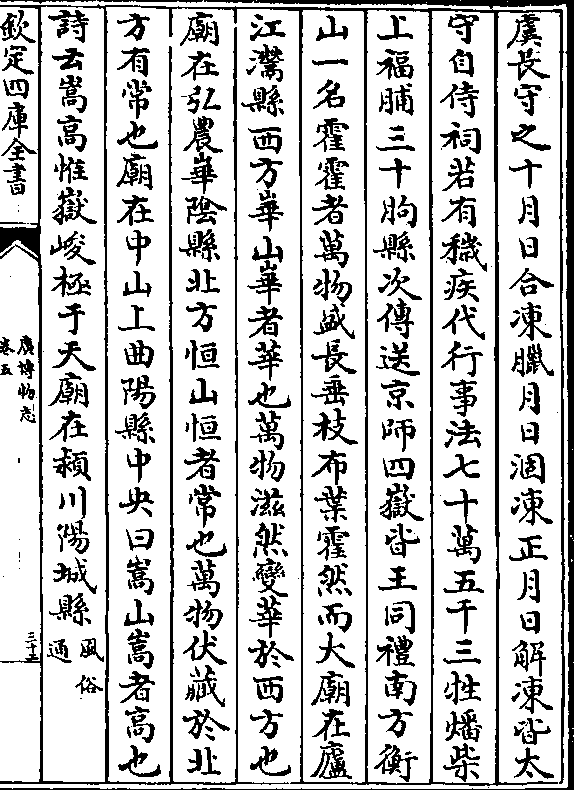 虞長守之十月日合凍臘月日涸凍正月日解凍皆太
守自侍祠若有穢疾代行事法七十萬五千三牲燔柴
上福脯三十朐縣次傳送京師四嶽皆王同禮南方衡
山一名霍霍者萬物盛長垂枝布葉霍然而大廟在廬
江灊縣西方崋山崋者華也萬物滋然變華於西方也
廟在弘農崋陰縣北方恒山恒者常也萬物伏藏於北
方有常也廟在中山上曲陽縣中央曰嵩山嵩者高也
詩云嵩高惟嶽峻極于天廟在潁川陽城縣風俗通
欽定四庫全書
廣博物志
卷五
三十二